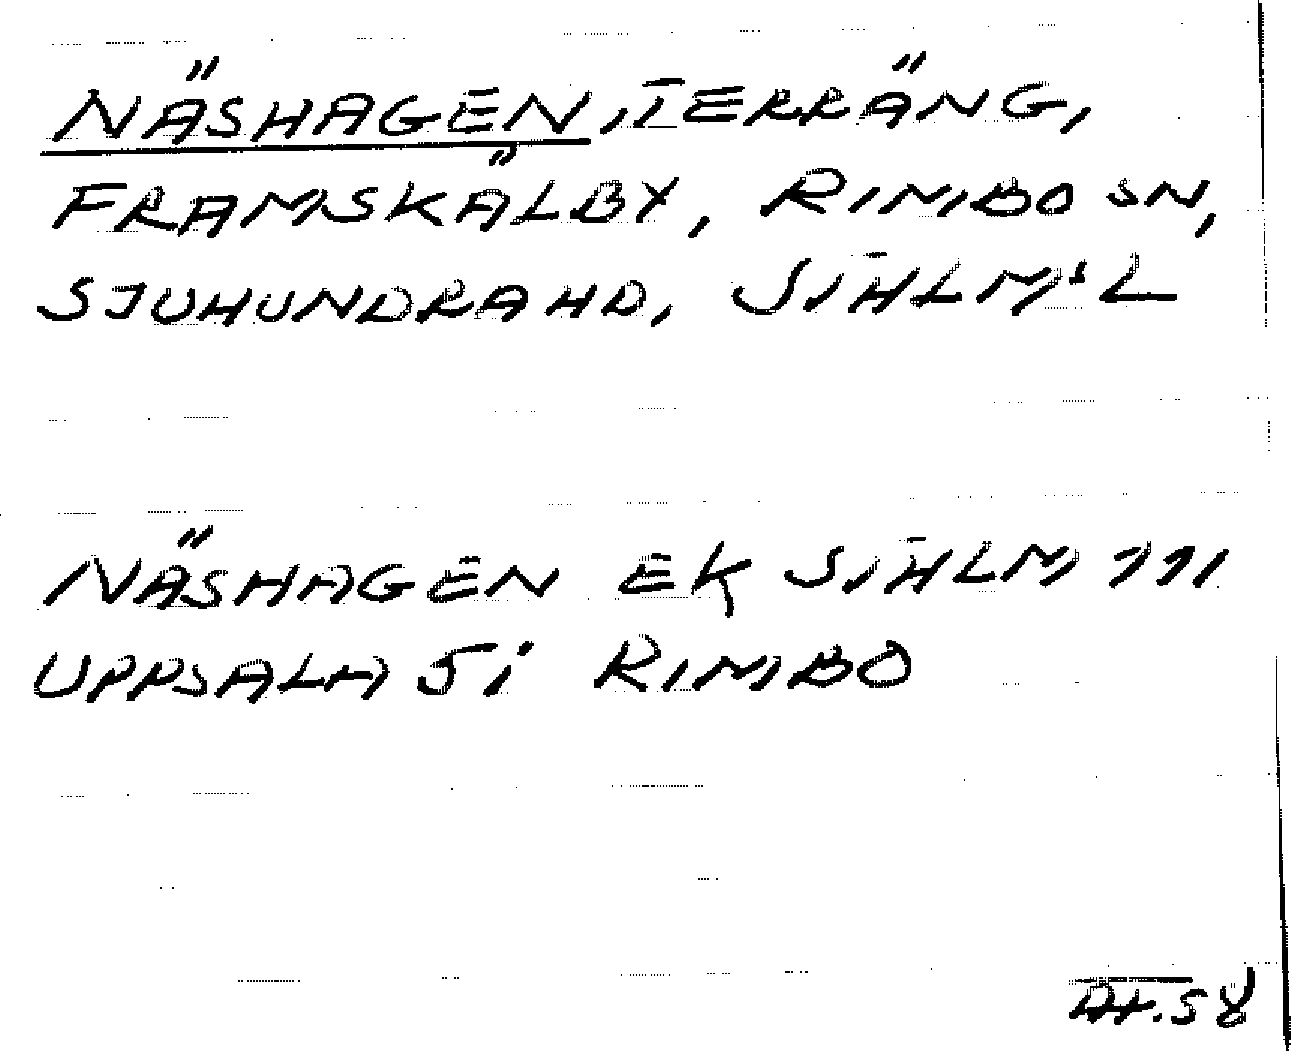 NÄSHAGEN, TERRÄNG,
FRAMSKÄLBY, RIMBO SN,
SJUHUNDRA HD, STHLM:S L
NÄSHAGEN EK STHLM 111
UPPSALA 51 RIMBO